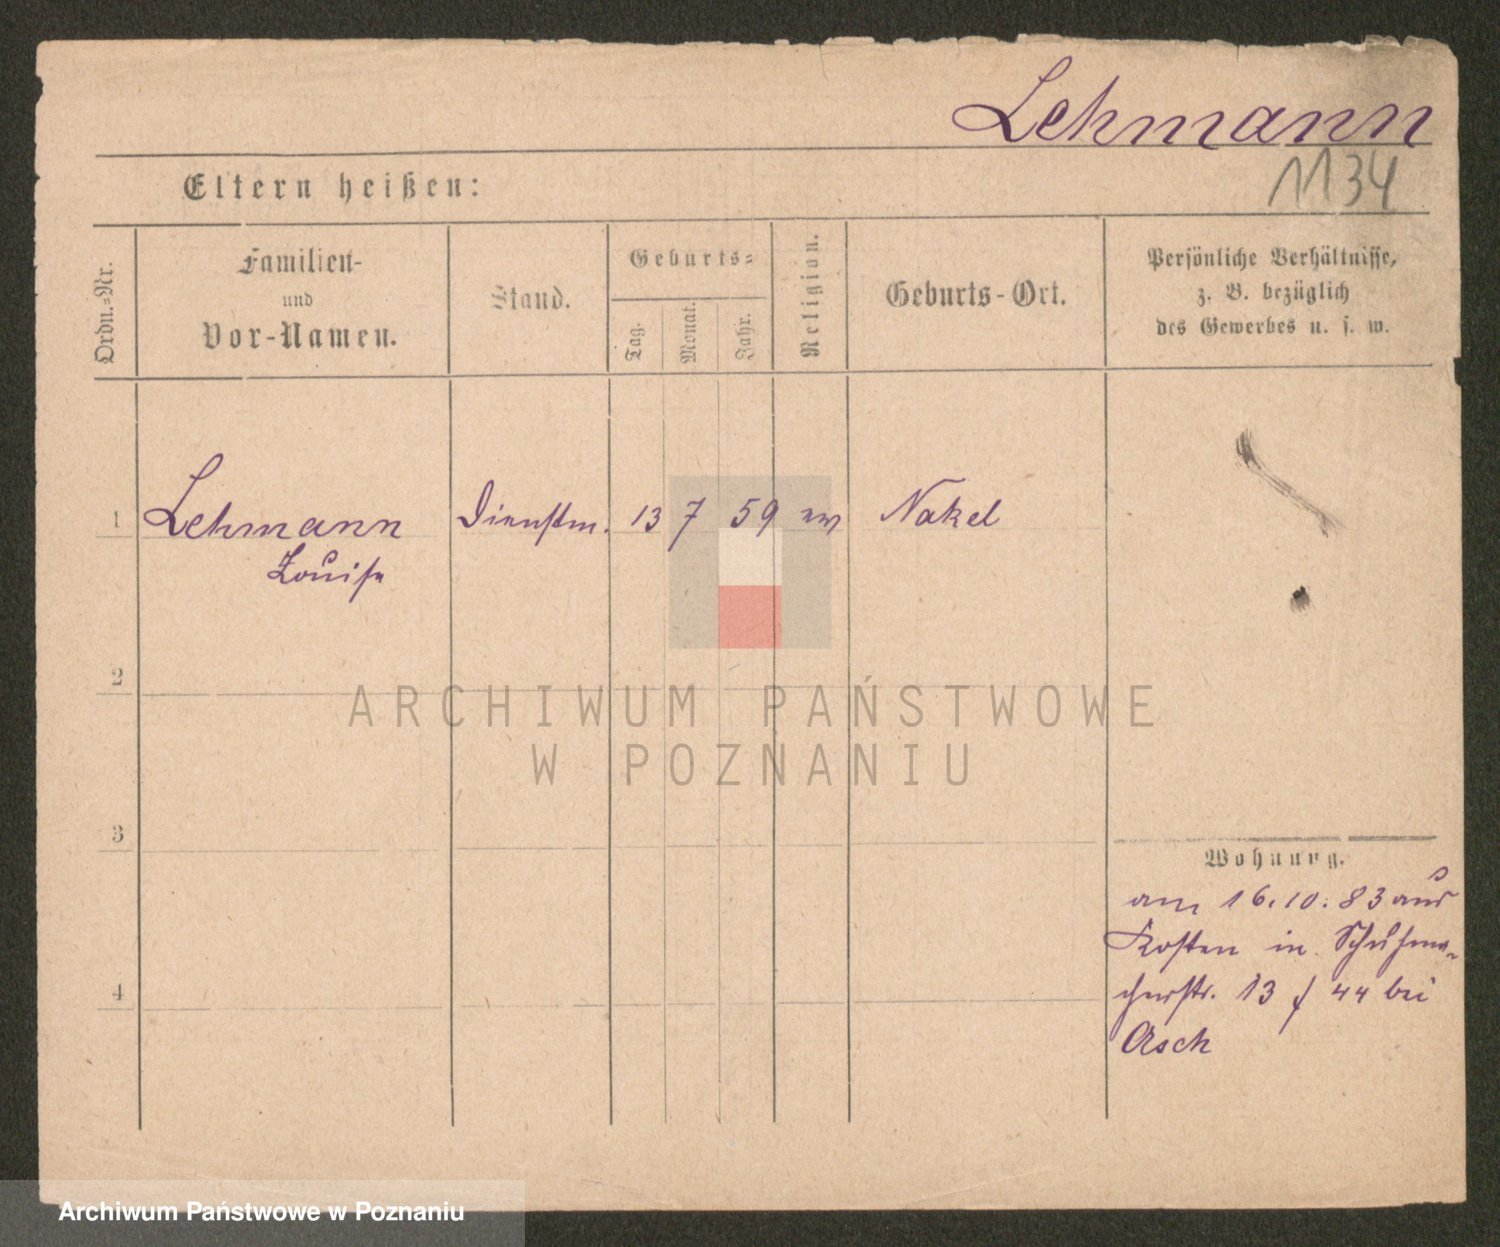 Lehmann
1134
Eltern heißen:
Ordn.=Nr.
Familien-
und
Vor-Namen.
Stand.
Geburts=
Tag.
Monat.
Jahr.
Religion.
Geburts-Ort.
Persönliche Verhältnisse,
z. B. bezüglich
des Gewerbes u. s. w.
1 Lehmann Dienstm. 13 7 59 ev Nakel
Louise
2
ARCHIWUM PAŃSTWOWE
W POZNANIU
3
Wohnung.
am 16.10.83 aus
Kosten in Schuhma-
cherstr. 13 f 44 bei
4
Asch
Archiwum Państwowe w Poznaniu